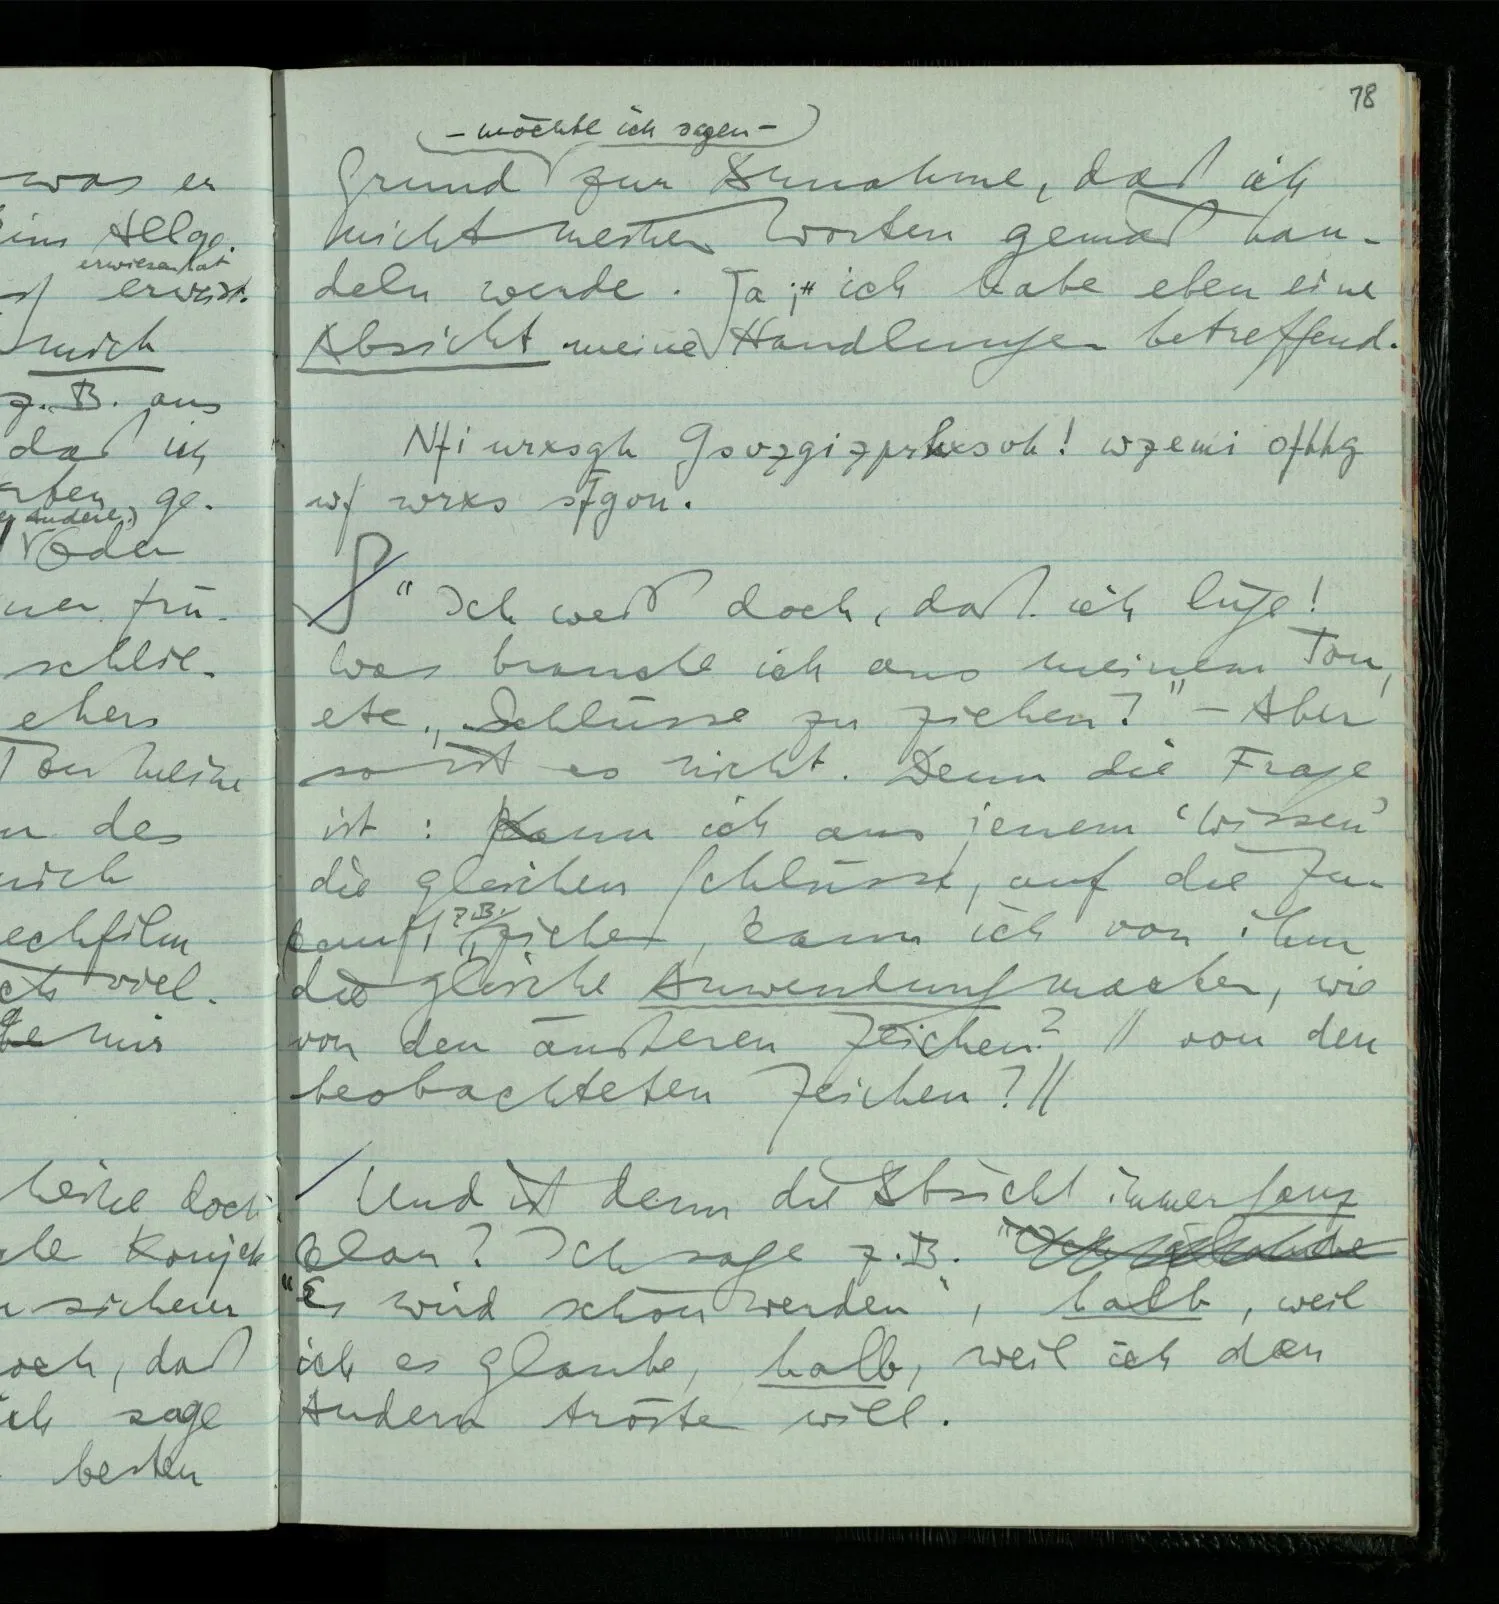 was er
ins Allge-
erwiesen hat
erweist.
mich
z.B. aus
daß ich
ge-
Andere)
Oder
frü-
schlie-
eher
Ton meine
des
mich
echfilm
viel-
mir
meine doch
Konjek
sicherer
och, daß
ich sage
besten
78
(– möchte ich sagen –)
Grund zur Annahme, daß ich
nicht meinen Worten gemäß han-
deln werde. Ja; ich habe eben eine
Absicht meine Handlungen betreffend.
Nfi urxsgh Gsvzgizprhxsvh! wzemi ofhhg
wf wrxs sfgvn.
"Ich weiß doch, daß ich lüge!
Was brauche ich aus meinem Ton,
etc., Schlüsse zu ziehen?" – Aber
so ist es nicht. Denn die Frage
ist: Kann ich aus jenem 'Wissen'
die gleichen Schlüsse, auf die Zu-
z.B.,
kunft ziehen, kann ich von ihm
die gleiche Anwendung machen, wie
von den äußeren Zeichen? // von den
beobachteten Zeichen? //
Und ist denn die Absicht immer ganz
klar? Ich sage z.B.
"Es wird schon werden", halb, weil
ich es glaube, halb, weil ich den
Andern trösten will.